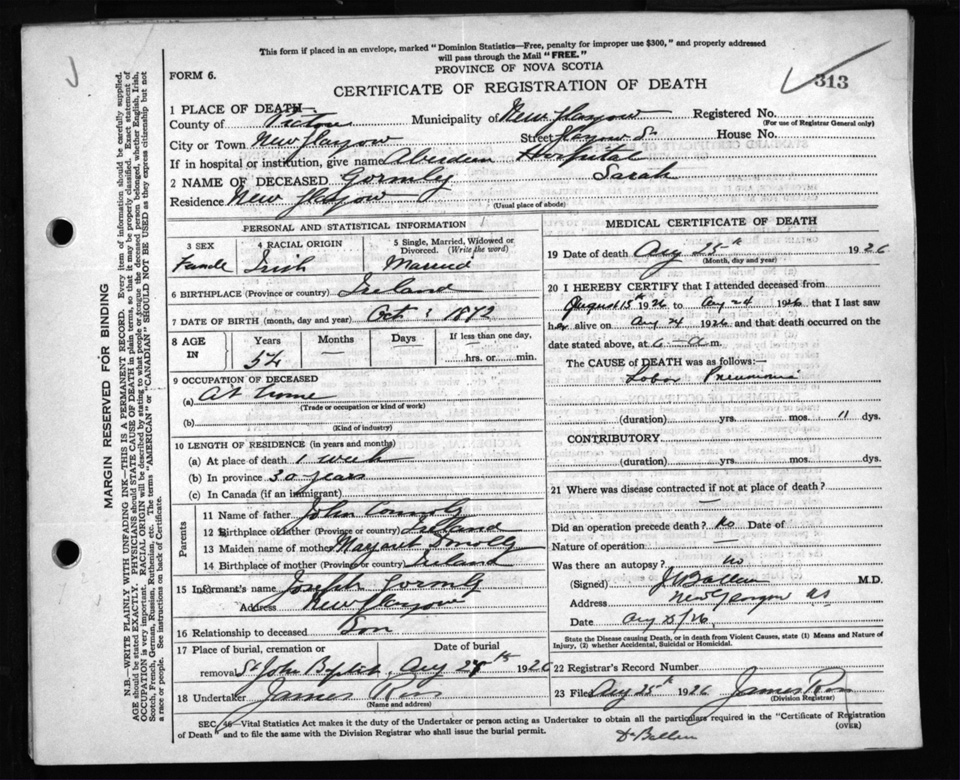 This form if placed in an envelope, marked "Dominion Statistics—Free, penalty for improper use $300," and properly addressed
will pass through the Mail "FREE."
PROVINCE OF NOVA SCOTIA
FORM 6.
CERTIFICATE OF REGISTRATION OF DEATH
313
1 PLACE OF DEATH—
County of Pictou Municipality of New Glasgow Registered No.
(For use of Registrar General only)
City or Town New Glasgow Street Glasgow St House No.
If in hospital or institution, give name Aberdeen Hospital
2 NAME OF DECEASED Gormly Sarah
Residence New Glasgow
(Usual place of abode)
PERSONAL AND STATISTICAL INFORMATION
3 SEX 4 RACIAL ORIGIN 5 Single, Married, Widowed or Divorced. (Write the word)
Female Irish Married
6 BIRTHPLACE (Province or country) Ireland
7 DATE OF BIRTH (month, day and year) Oct : 1872
8 AGE IN Years Months Days If less than one day,
54 — — hrs. or min.
9 OCCUPATION OF DECEASED
(a) At home
(Trade or occupation or kind of work)
(b)
(Kind of industry)
10 LENGTH OF RESIDENCE (in years and months)
(a) At place of death 1 week
(b) In province 30 years
(c) In Canada (if an immigrant)
Parents
11 Name of father John Connoly
12 Birthplace of father (Province or country) Ireland
13 Maiden name of mother Margaret
14 Birthplace of mother (Province or country) Ireland
15 Informant's name Joseph Gormly
Address New Glasgow
16 Relationship to deceased Son
17 Place of burial, cremation or removal Date of burial
St John Baptist, Aug 28th 1926
18 Undertaker James Ross
(Name and address)
MEDICAL CERTIFICATE OF DEATH
19 Date of death Aug 25th 1926
(Month, day and year)
20 I HEREBY CERTIFY that I attended deceased from
August 15th 1926 to Aug 24 1926 that I last saw
her alive on Aug 24 1926 and that death occurred on the
date stated above, at 6-a m.
The CAUSE of DEATH was as follows:—
Lobar Pneumonia
(duration) yrs. mos. 11 dys.
CONTRIBUTORY
(duration) yrs. mos. dys.
21 Where was disease contracted if not at place of death?
—
Did an operation precede death? No Date of
Nature of operation —
Was there an autopsy? no
(Signed) M.D.
Address New Glasgow NS
Date Aug 25/26
State the Disease causing Death, or in death from Violent Causes, state (1) Means and Nature of
Injury, (2) whether Accidental, Suicidal or Homicidal.
22 Registrar's Record Number
23 Filed Aug 25th 1926 James Ross
(Division Registrar)
SEC. 46—Vital Statistics Act makes it the duty of the Undertaker or person acting as Undertaker to obtain all the particulars required in the "Certificate of Registration
of Death" and to file the same with the Division Registrar who shall issue the burial permit.
(OVER)
MARGIN RESERVED FOR BINDING
N.B.—WRITE PLAINLY WITH UNFADING INK—THIS IS A PERMANENT RECORD. Every item of information should be carefully supplied.
AGE should be stated EXACTLY. PHYSICIANS should STATE CAUSE OF DEATH in plain terms, so that it may be properly classified. Exact statement of
OCCUPATION is very important. RACIAL ORIGIN will be described by stating to what people or tongue the deceased person belonged, whether English, Irish,
Scotch, French, German, Russian, Ruthenian, etc. The terms "AMERICAN" or "CANADIAN" SHOULD NOT BE USED as they express citizenship but not
a race or people. See instructions on back of Certificate.